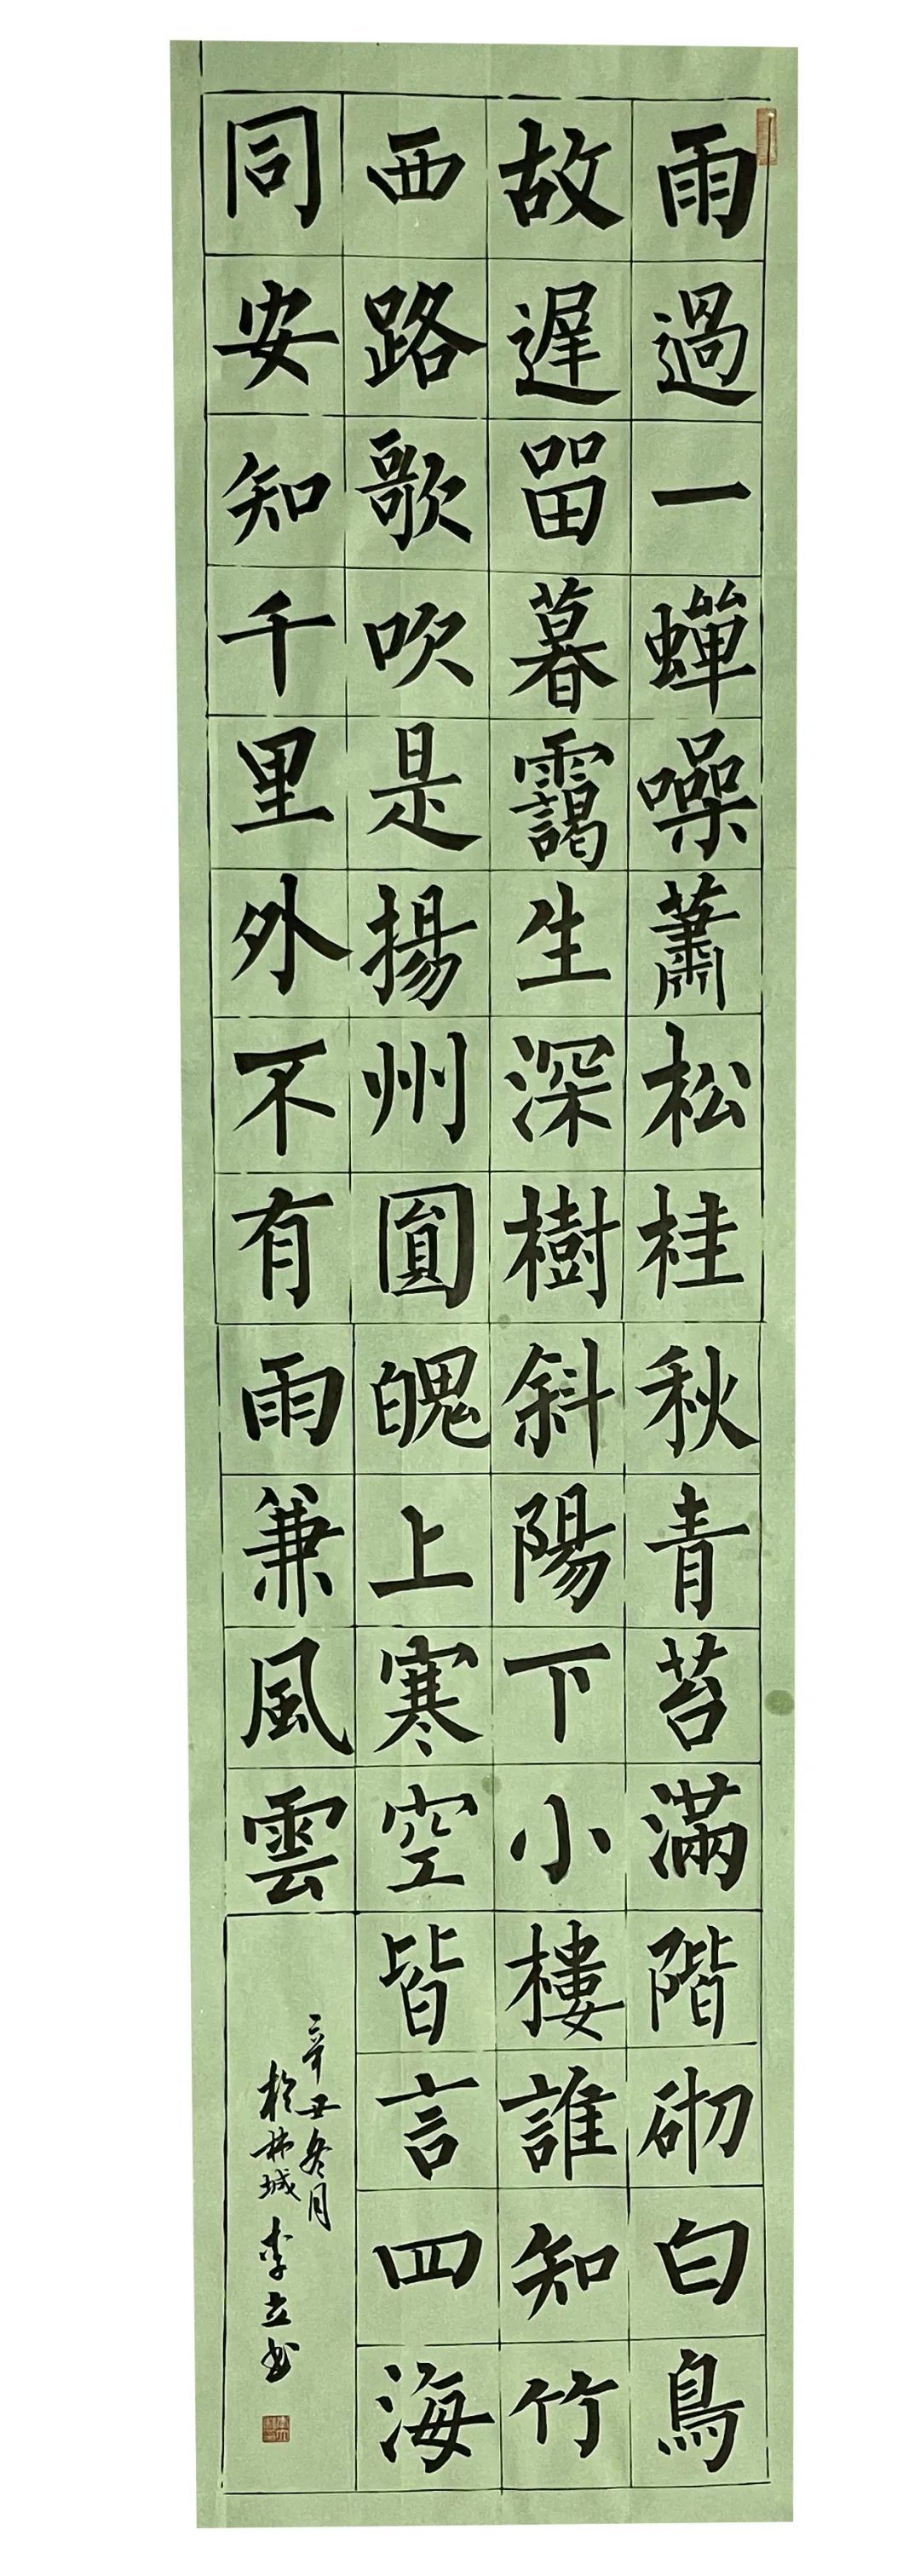 雨過一蟬噪蕭松桂秋青苔滿階砌白鳥
故遲畱暮靄生深樹斜陽下小樓誰知竹
西路歌吹是揚州圓魄上寒空皆言四海
同安知千里外不有雨兼風雲
辛丑冬月
於林城李立书